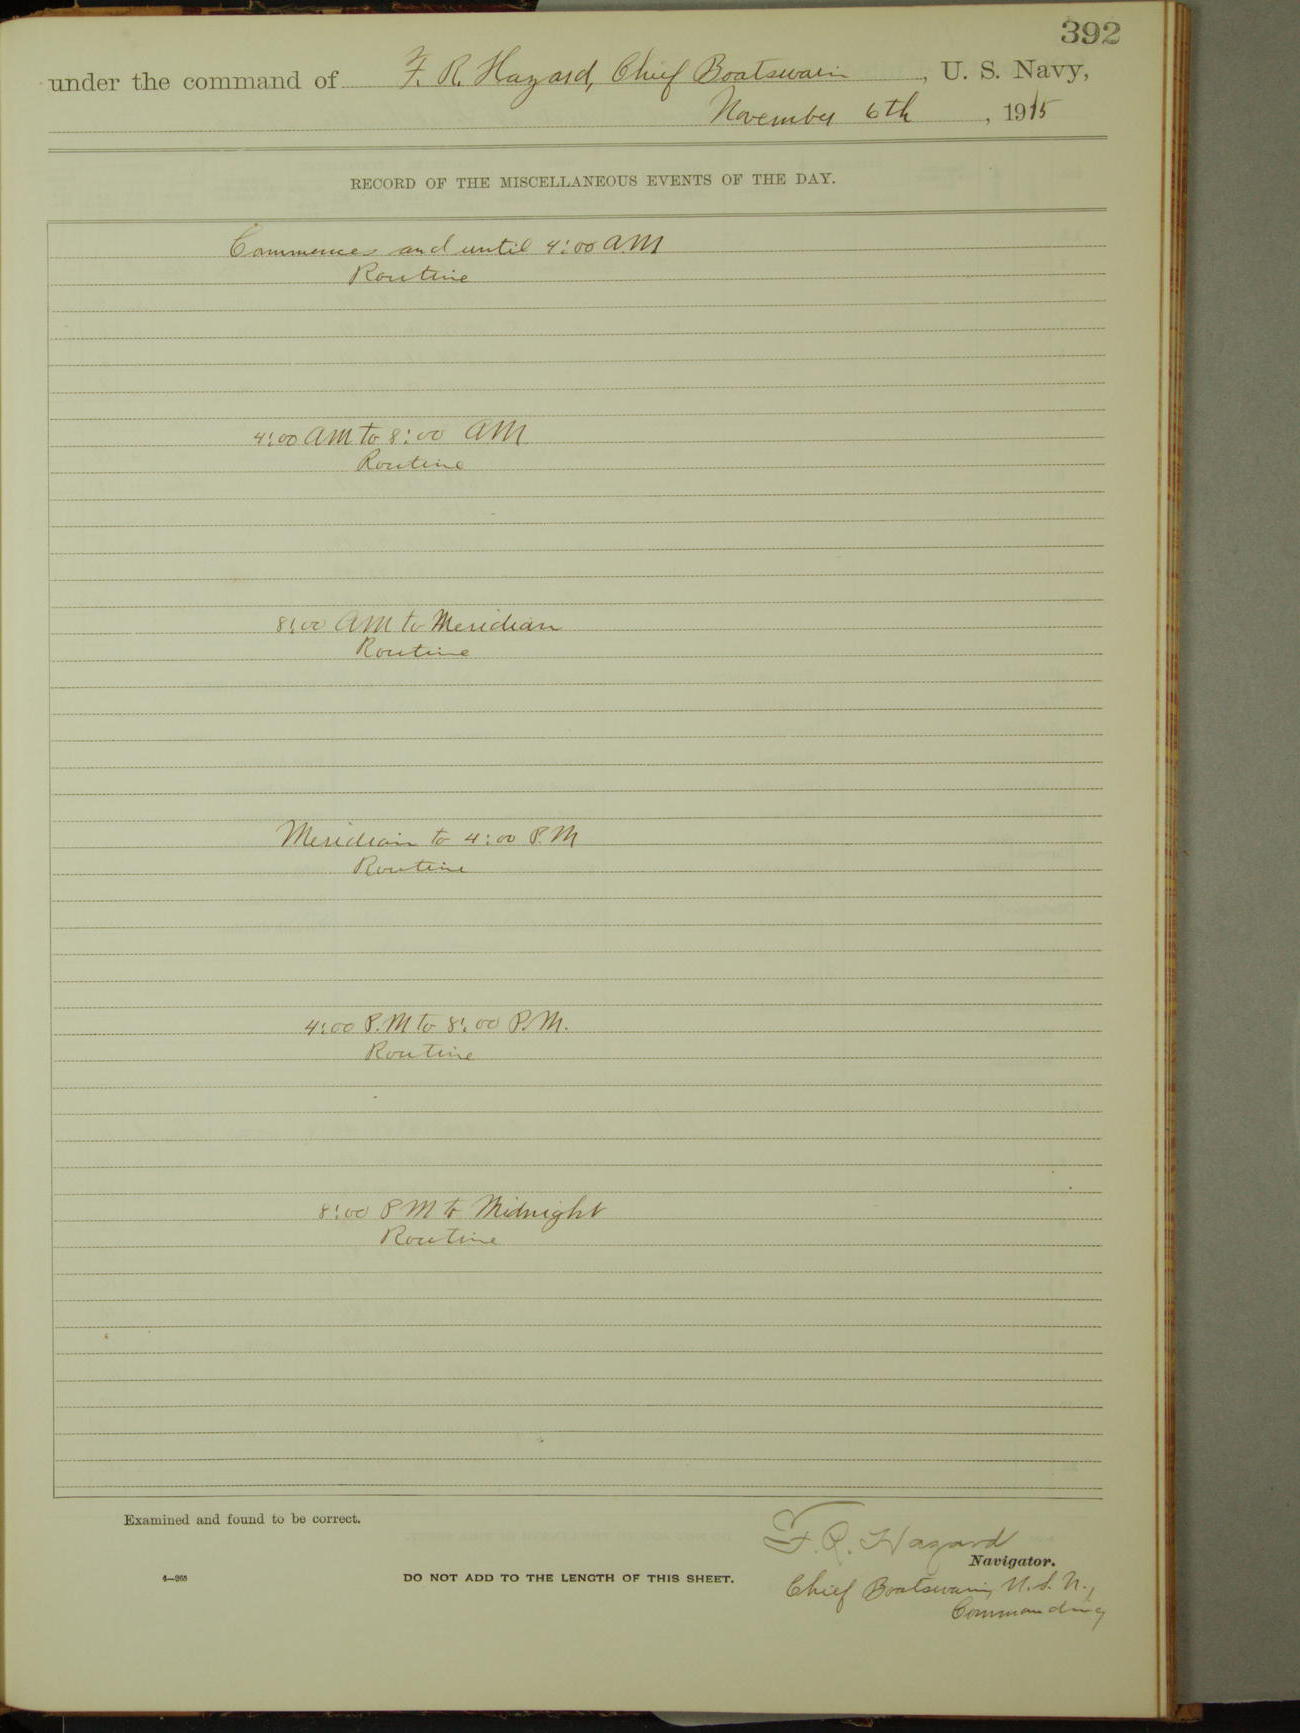 392
under the command of F. R. Hazard, Chief Boatswain, U. S. Navy,
November 6th, 1915
RECORD OF THE MISCELLANEOUS EVENTS OF THE DAY.
Commences and until 4:00 AM
Routine
4:00 AM to 8:00 AM
Routine
8:00 AM to Meridian
Routine
Meridian to 4:00 P.M
Routine
4:00 P.M to 8:00 P.M.
Routine
8:00 PM to Midnight
Routine
Examined and found to be correct.
F. R. Hazard
Navigator.
4—965
DO NOT ADD TO THE LENGTH OF THIS SHEET.
Chief Boatswain, U.S.N.,
Commanding